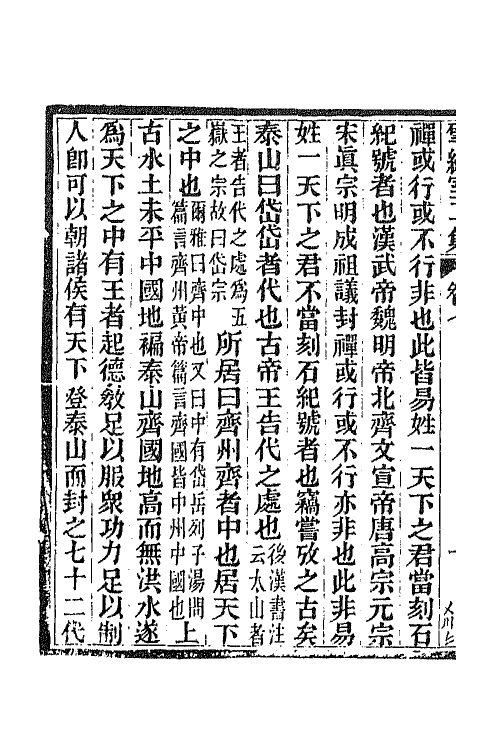 禪或行或不行非也此皆易姓一天下之君當刻石
紀號者也漢武帝魏明帝北齊文宣帝唐高宗元宗
宋眞宗明成祖議封禪或行或不行亦非也此非易
姓一天下之君不當刻石紀號者也竊嘗攷之古矣
泰山曰岱岱者代也古帝王告代之處也後漢書注云太山者
王者告代之處爲五嶽之宗故曰岱宗所居曰齊州齊者中也居天下
之中也爾雅曰齊中也又曰中有岱岳列子湯問篇言齊州黃帝篇言齊國皆中州中國也上
古水土未平中國地褊泰山齊國地高而無洪水遂
爲天下之中有王者起德敎足以服衆功力足以制
人卽可以朝諸侯有天下登泰山而封之七十二代